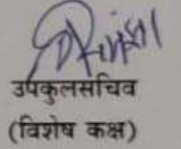 उपकुलसचिव
(विशेष कक्ष)